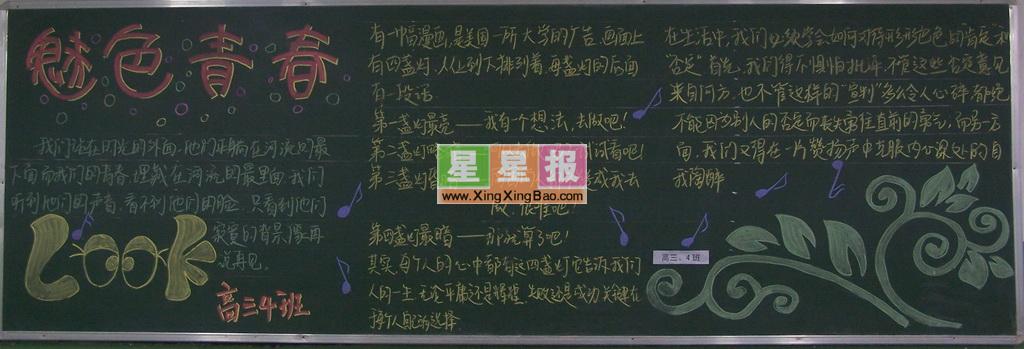 魅色青春
我们站在时光的外面,他们正躺在河流的最
下面而我们的青春埋藏在河流的最里面,我们
听到他们的声音,看不到他们的脸,只看到他们
寂寞的背景,像再
说再见。
LOOK
高三4班
有一幅漫画,是美国一所大学的广告,画面上
有四盏灯,从上到下排列着,每盏灯的后面
有一段话
第一盏灯最亮——我有一个想法,去做吧!
第二盏灯
试看吧!
第三盏灯
或我去
做,很难吧!
第四盏灯最暗——那就算了吧!
其实,每个人的心中都有这四盏灯,它告诉我们
人的一生,无论平庸还是辉煌,失败还是成功,关键在
于个人自己的选择
在生活中,我们必须学会如何对待形形色色的肯定和
"否定"首先,我们得不惧怕批评,不管这些否定意见
来自何方,也不管这样的"宣判"多么令人心碎,都绝
不能因为别人的否定而丧失奮往直前的勇气,而另一方
面,我们又得在一片赞扬声中克服内心深处的自
我陶醉
高三、4班
星星报
www.XingXingBao.com